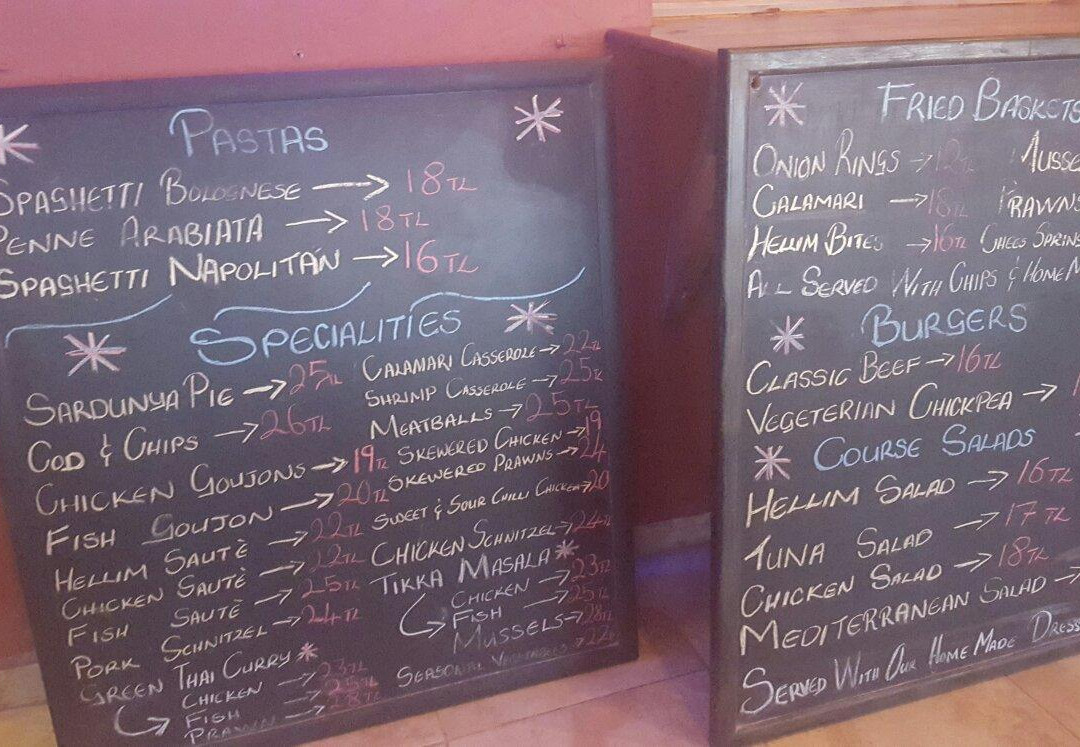 PASTAS
SPAGHETTI BOLOGNESE → 18TL
PENNE ARABIATA → 18TL
SPAGHETTI NAPOLITÁN → 16TL
SPECIALITIES
SARDUNYA PIE → 25TL
COD & CHIPS → 26TL
CHICKEN GOUJONS → 19TL
FISH GOUJON → 20TL
HELLIM SAUTÈ → 22TL
CHICKEN SAUTÈ → 22TL
FISH SAUTÈ → 25TL
PORK SCHNITZEL → 24TL
GREEN THAI CURRY
CHICKEN → 23TL
FISH →
PRAWN → 28TL
CALAMARI CASSEROLE → 22TL
SHRIMP CASSEROLE → 25TL
MEATBALLS → 25TL
SKEWERED CHICKEN → 19
SKEWERED PRAWNS → 24
SWEET & SOUR CHILLI CHICKEN → 20
CHICKEN SCHNITZEL → 24TL
TIKKA MASALA
CHICKEN → 23TL
FISH → 25TL
MUSSELS → 28TL
SEASONAL VEGETABLES → 22
FRIED BASKETS
ONION RINGS → 12TL MUSSE
CALAMARI → 18TL PRAWNS
HELLIM BITES → 16TL CHEES SPRING
ALL SERVED WITH CHIPS & HOME M
BURGERS
CLASSIC BEEF → 16TL
VEGETERIAN CHICKPEA →
COURSE SALADS
HELLIM SALAD → 16TL
TUNA SALAD → 17TL
CHICKEN SALAD → 18TL
MEDITERRANEAN SALAD →
SERVED WITH OUR HOME MADE DRESS